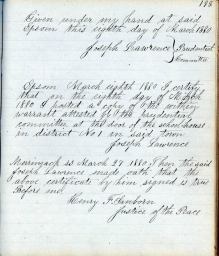 198
Given under my hand at said
Epsom this eighth day of March 1880
Joseph Lawrence } Prudential
Committee
Epsom March eighth 1880 I certify
that on the eighth day of March
1880 I posted a copy of the within
warrant attested by the prudential
committee at the door of the schoolhouse
in district No 1 in said town
Joseph Lawrence
Merrimack ss March 27 1880 then the said
Joseph Lawrence made oath that the
above certificate by him signed is true
Before me
Henry F. Sanborn
Justice of the Peace